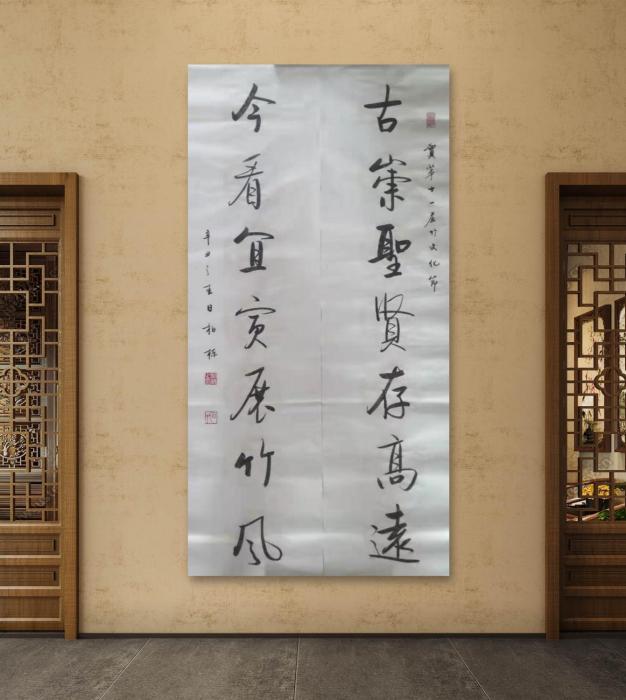 賀第十一届竹文化節
古崇聖賢存高遠
今看宜賓展竹風
辛丑之日柏